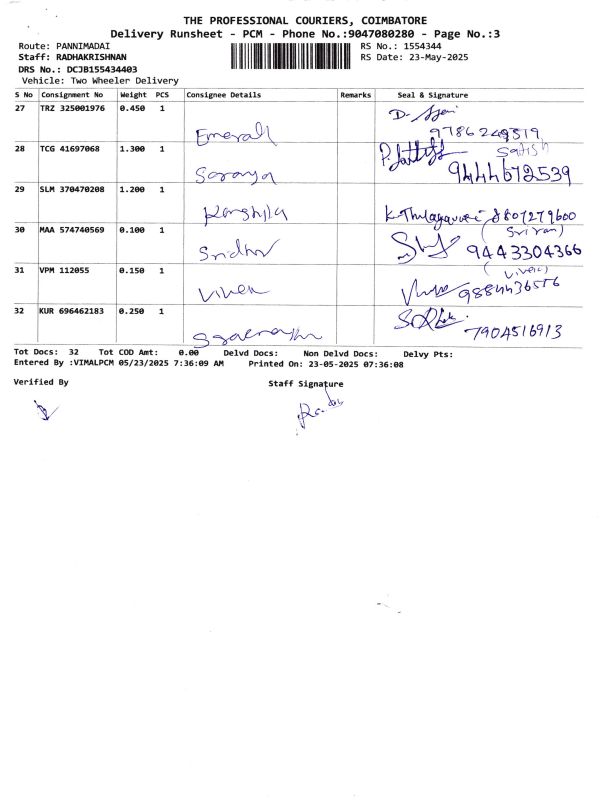 THE PROFESSIONAL COURIERS, COIMBATORE
Delivery Runsheet - PCM - Phone No.:9047080280 - Page No.:3
Route: PANNIMADAI RS No.: 1554344
Staff: RADHAKRISHNAN RS Date: 23-May-2025
DRS No.: DCJB155434403
Vehicle: Two Wheeler Delivery
S No Consignment No Weight PCS Consignee Details Remarks Seal & Signature
27 TRZ 325001976 0.450 1
Emerall 9786249519
28 TCG 41697068 1.300 1 Satish
Saranya 9444672539
29 SLM 370470208 1.200 1
8807279600
30 MAA 574740569 0.100 1 (Sriram)
Sridhar 9443304366
31 VPM 112055 0.150 1 (Vivek)
Vivek 9884436576
32 KUR 696462183 0.250 1
7904516913
Tot Docs: 32 Tot COD Amt: 0.00 Delvd Docs: Non Delvd Docs: Delvy Pts:
Entered By :VIMALPCM 05/23/2025 7:36:09 AM Printed On: 23-05-2025 07:36:08
Verified By Staff Signature